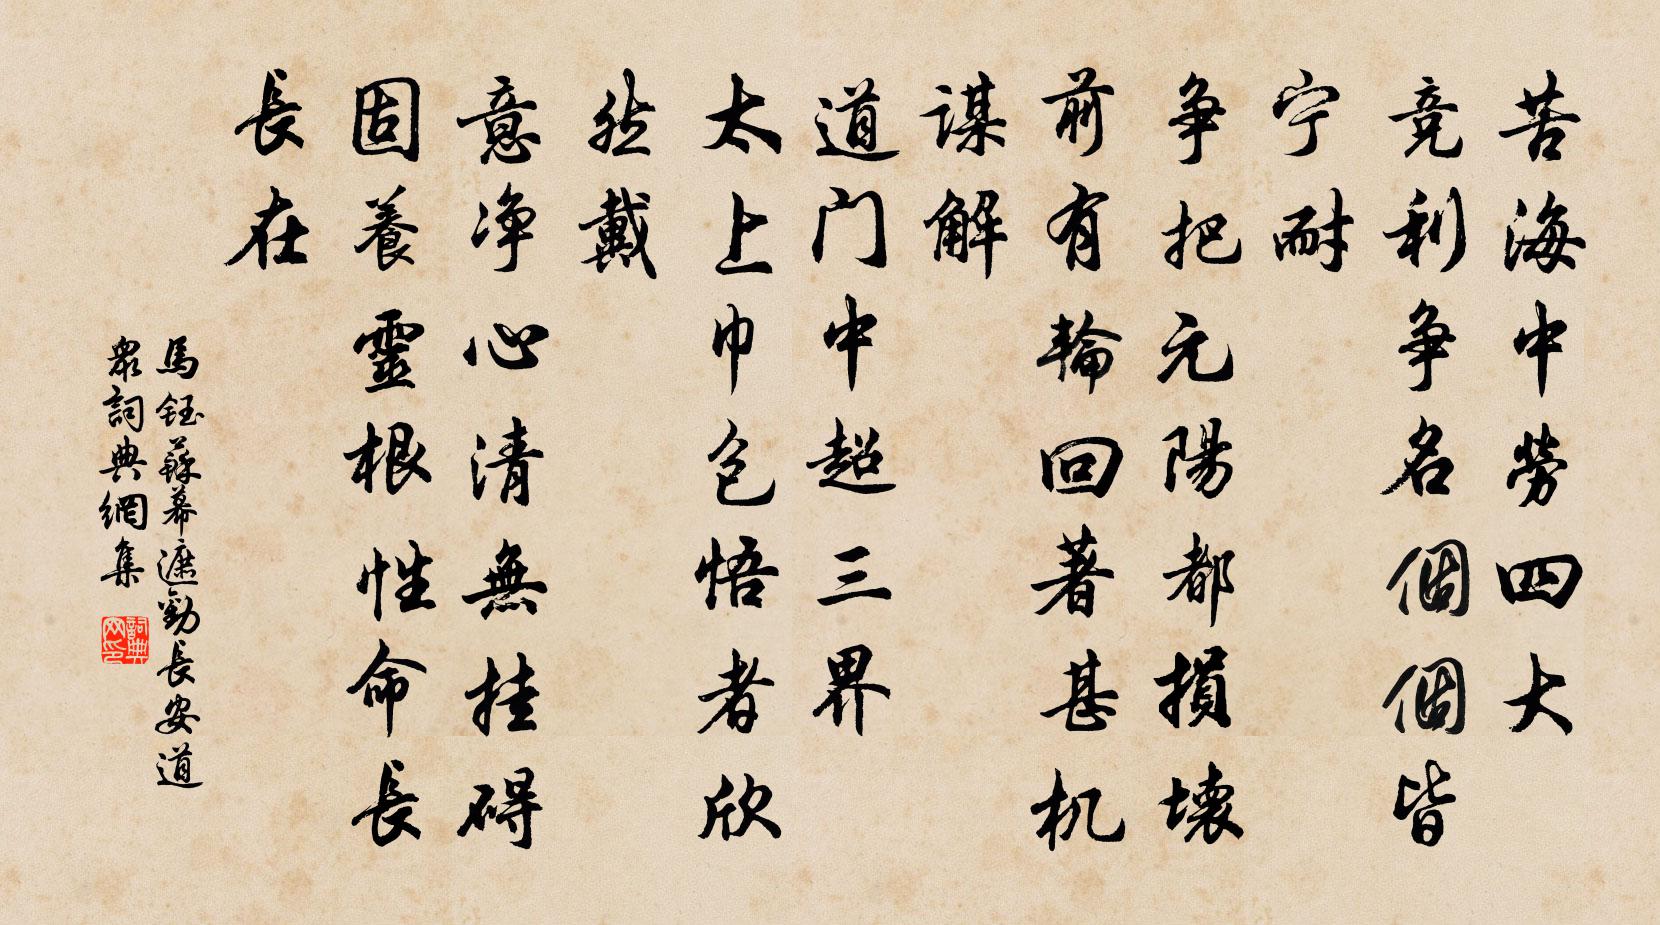 苦海中勞四大
竞利争名個個皆
宁耐
争把元陽都損壞
前有輪回著甚机
謀解
道门中超三界
太上巾包悟者欣
然戴
意净心清無挂碍
固養靈根性命長
長在
馬鈺蘇幕遮勸長安道
眾詞典網集
詞典网印